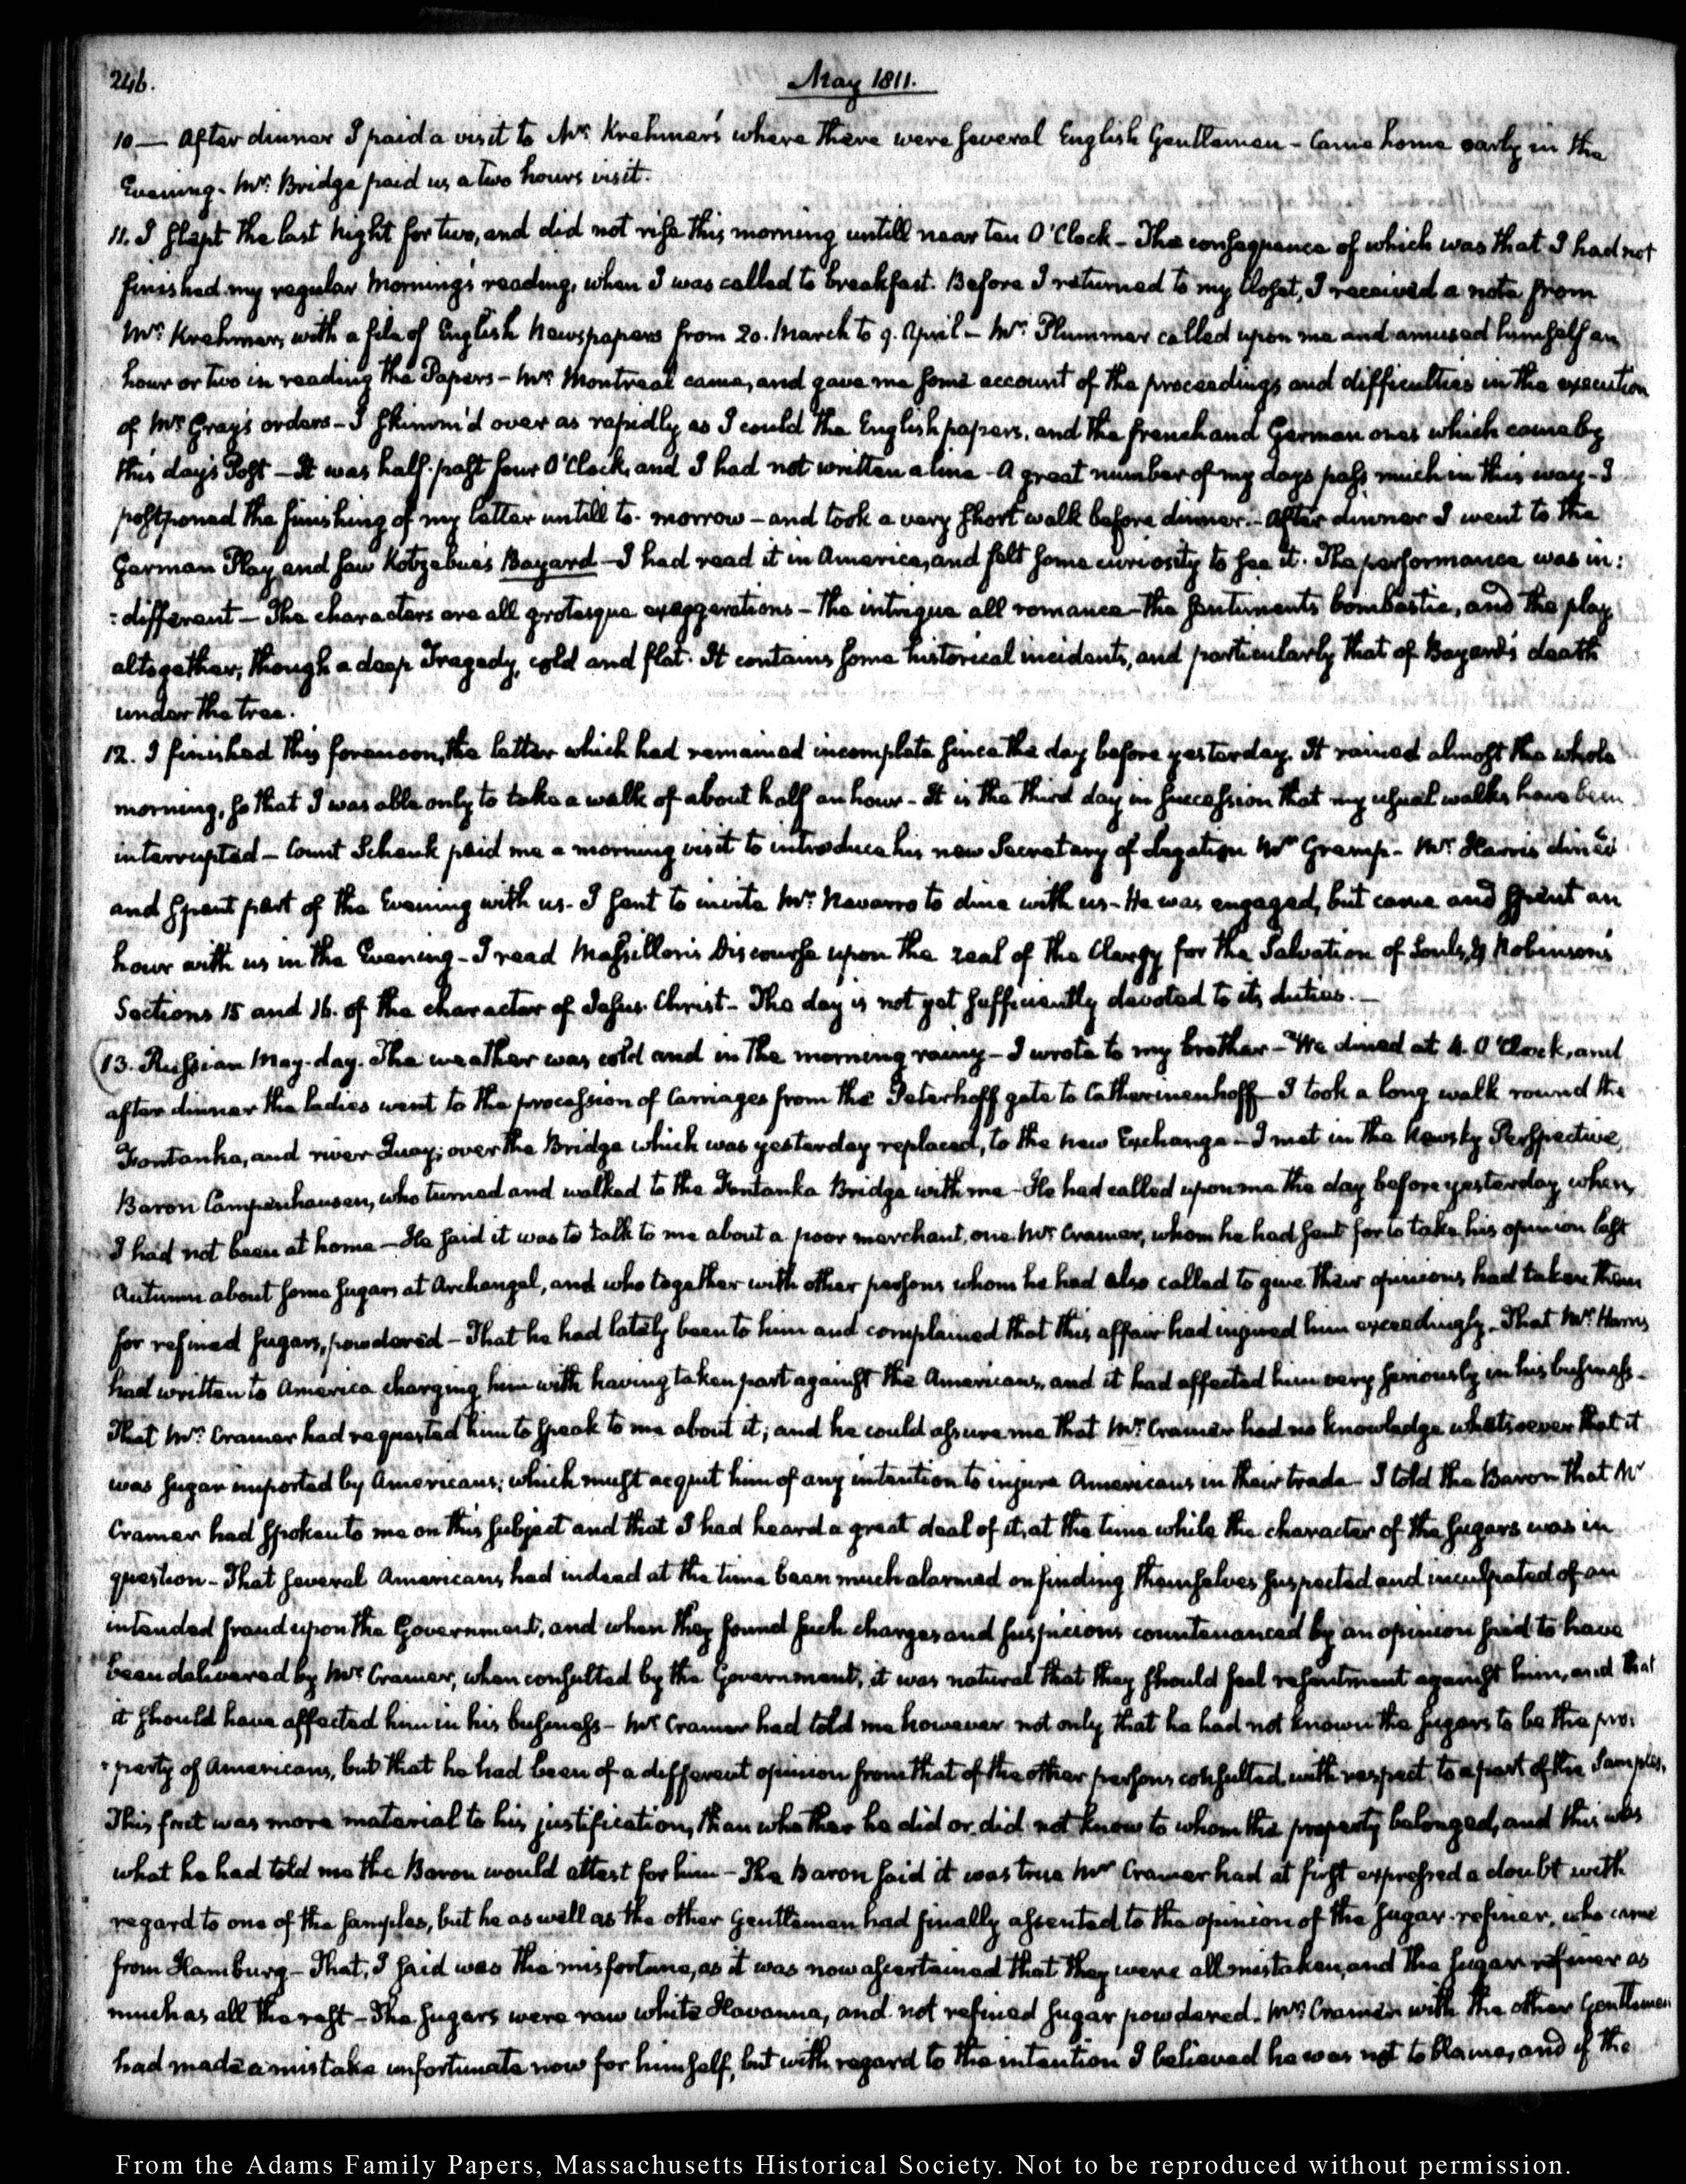 246.
May 1811.
10 — After dinner I paid a visit to Mr. Krehmer's where there were several English Gentlemen - Came home early in the
Evening. Mr. Bridge paid us a two hours visit.
11. I slept the last night for two, and did not rise this morning untill near ten O'Clock - The consequence of which was that I had not
finished my regular morning's reading, when I was called to breakfast. Before I returned to my closet, I received a note from
Mr. Krehmer, with a file of English Newspapers from 20. March to 9. April - Mr. Plummer called upon me and amused himself an
hour or two in reading the Papers - Mr. Montreal came, and gave me some account of the proceedings and difficulties in the execution
of Mr. Gray's orders - I skimm'd over as rapidly as I could the English papers, and the french and German ones which came by
this day's Post - It was half past four O'Clock, and I had not written a line - A great number of my days pass much in this way - I
postponed the finishing of my letter untill to-morrow - and took a very short walk before dinner. - After dinner I went to the
German Play and saw Kotzebue's Bayard - I had read it in America, and felt some curiosity to see it. The performance was in:
:different - The characters are all grotesque exaggerations - the intrigue all romance - the sentiments bombastic, and the play
altogether, though a deep Tragedy, cold and flat. It contains some historical incidents, and particularly that of Bayard's death
under the tree.
12. I finished this forenoon, the letter which had remained incomplete since the day before yesterday. It rained almost the whole
morning, so that I was able only to take a walk of about half an hour - It is the third day in succession that my usual walks have been
interrupted - Count Schenk paid me a morning visit to introduce his new Secretary of legation Mr. Gremp - Mr. Harris dined
and spent part of the Evening with us - I sent to invite Mr. Navarro to dine with us - He was engaged, but came and spent an
hour with us in the Evening - I read Massillon's Discourse upon the zeal of the Clergy for the Salvation of Souls, & Robinson's
Sections 15 and 16. of the character of Jesus Christ - The day is not yet sufficiently devoted to its duties. —
(13. Russian May-day. The weather was cold and in the morning rainy - I wrote to my brother - We dined at 4. O'Clock, and
after dinner the ladies went to the procession of Carriages from the Peterhoff gate to Catherinenhoff - I took a long walk round the
Fontanka, and river Quay; over the Bridge which was yesterday replaced, to the new Exchange - I met in the Newsky Perspective,
Baron Campenhausen, who turned and walked to the Fontanka Bridge with me - He had called upon me the day before yesterday when,
I had not been at home - He said it was to talk to me about a poor merchant, one Mr. Cramer, whom he had sent for to take his opinion last
Autumn about some sugars at Archangel, and who together with other persons whom he had also called to give their opinions had taken them
for refined sugars, powdered - That he had lately been to him and complained that this affair had injured him exceedingly - That Mr. Harris
had written to America charging him with having taken part against the Americans, and it had affected him very seriously in his business -
That Mr. Cramer had requested him to speak to me about it; and he could assure me that Mr. Cramer had no knowledge whatsoever that it
was sugar imported by Americans; which must acquit him of any intention to injure Americans in their trade - I told the Baron that Mr.
Cramer had spoken to me on this subject and that I had heard a great deal of it, at the time while the character of the sugars was in
question - That several Americans had indeed at the time been much alarmed on finding themselves suspected and inculpated of an
intended fraud upon the Government, and when they found such charges and suspicions countenanced by an opinion said to have
been delivered by Mr. Cramer, when consulted by the Government, it was natural that they should feel resentment against him, and that
it should have affected him in his business - Mr. Cramer had told me however not only that he had not known the sugars to be the pro:
:perty of Americans, but that he had been of a different opinion from that of the other persons consulted, with respect to a part of the Samples.
This fact was more material to his justification, than whether he did or did not know to whom the property belonged, and this was
what he had told me the Baron would attest for him - The Baron said it was true Mr. Cramer had at first expressed a doubt with
regard to one of the samples, but he as well as the other Gentlemen had finally assented to the opinion of the sugar-refiner, who came
from Hamburg - That, I said was the misfortune, as it was now ascertained that they were all mistaken, and the sugar refiner as
much as all the rest - The sugars were raw white Havanna, and not refined sugar powdered. Mr. Cramer with the other Gentlemen
had made a mistake unfortunate now for himself, but with regard to the intention I believed he was not to blame, and if the
From the Adams Family Papers, Massachusetts Historical Society. Not to be reproduced without permission.